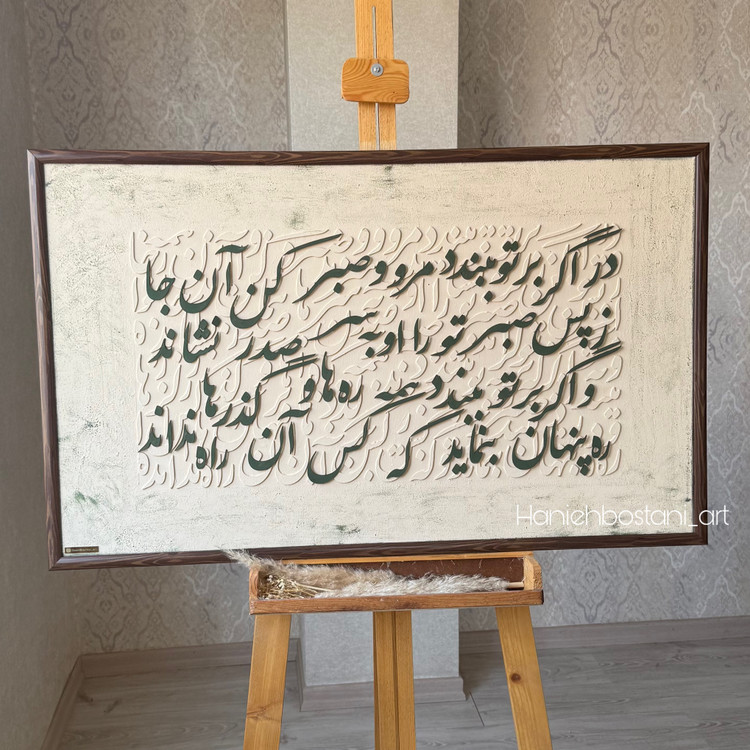 در اگر بر تو ببندد مرو و صبر کن آن جا
ز پس صبر تو را او به سر صدر نشاند
و اگر بر تو ببندد همه ره ها و گذرها
ره پنهان بنماید که کس آن راه نداند
Haniehbostani_art